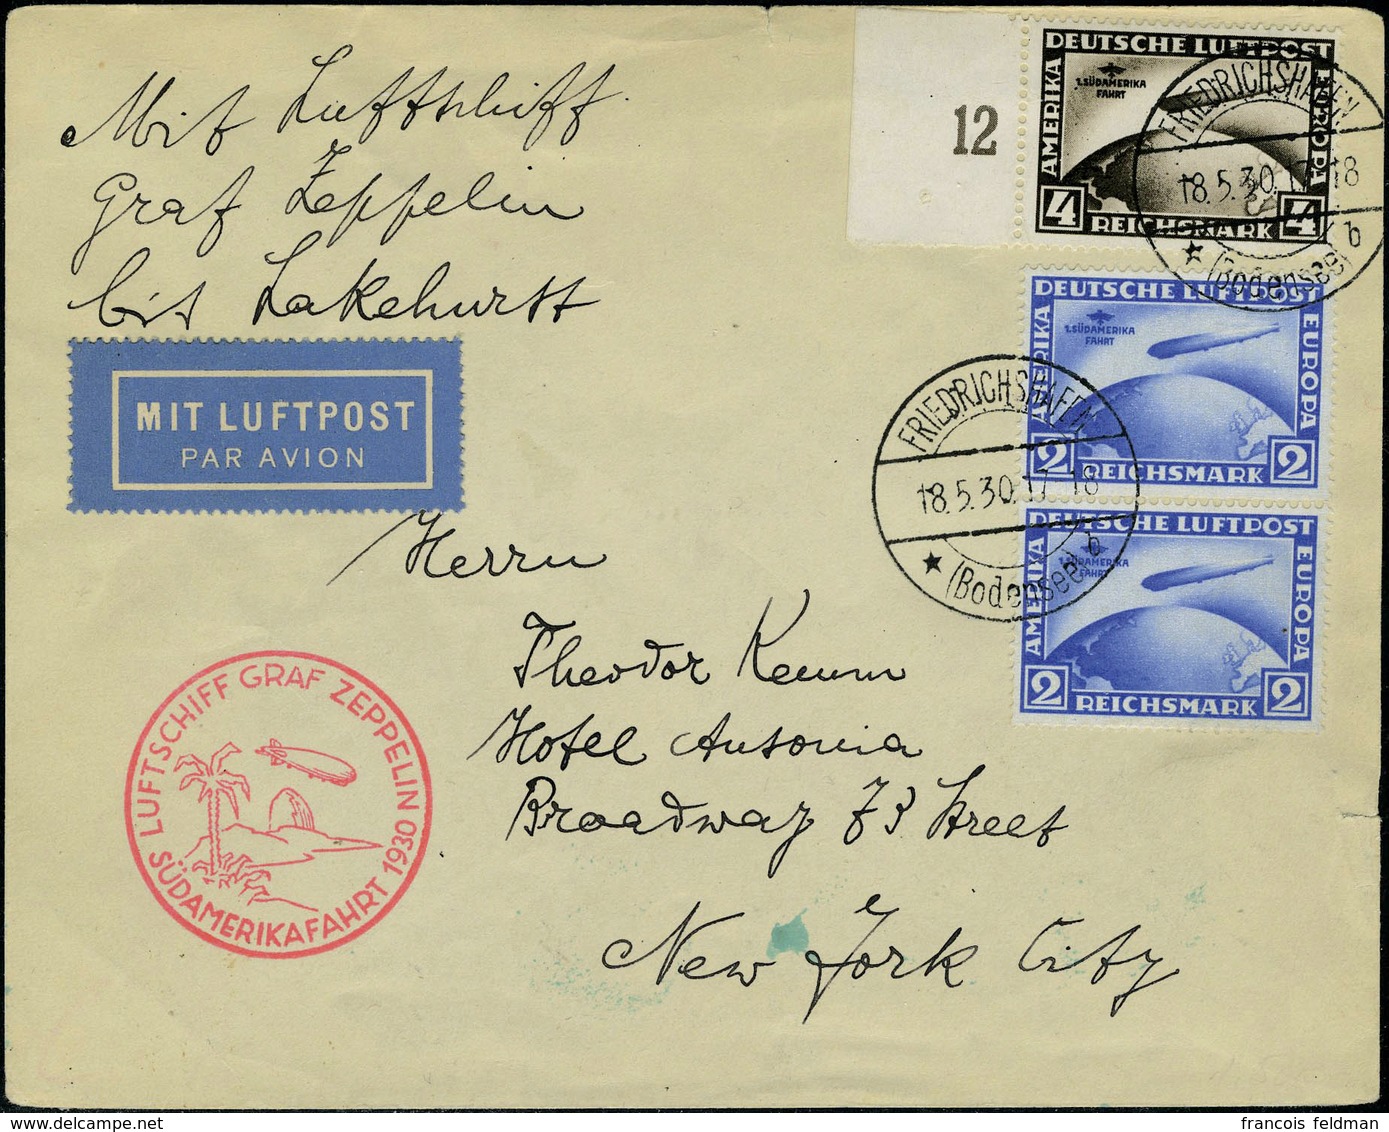 Mit Luftschiff
Graf Zeppelin
bis Lakehurst
MIT LUFTPOST
PAR AVION
12
DEUTSCHE LUFTPOST
1. SÜDAMERIKA
FAHRT
AMERIKA
EUROPA
4 REICHSMARK 4
FRIEDRICHSHAFEN
18.5.30.17-18
★ (Bodensee) b
DEUTSCHE LUFTPOST
1. SÜDAMERIKA
FAHRT
AMERIKA
EUROPA
2 REICHSMARK 2
FRIEDRICHSHAFEN
18.5.30.17-18
★ (Bodensee) b
DEUTSCHE LUFTPOST
1. SÜDAMERIKA
FAHRT
AMERIKA
EUROPA
2 REICHSMARK 2
Herrn
Theodor
Hotel Ansonia
Broadway 73 Street
New York City
LUFTSCHIFF GRAF ZEPPELIN
SÜDAMERIKAFAHRT 1930
www.delcampe.net
francois feldman